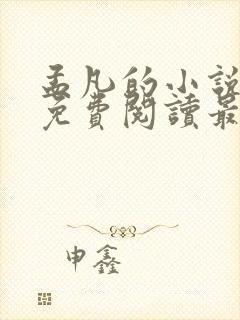 孟凡的小說
免費閱讀最
申鑫